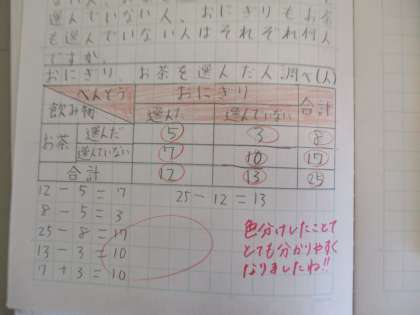 選んでいない人、おにぎりもお茶
も選んでいない人はそれぞれ何人
ですか。
おにぎり、お茶を選んだ人調べ(人)
べんとう おにぎり 合計
飲み物 選んだ 選んでいない
お茶 選んだ 5 3 8
選んでいない 7 10 17
合計 12 13 25
12 - 5 = 7 25 - 12 = 13
8 - 5 = 3
25 - 8 = 17
13 - 3 = 10
7 + 3 = 10
色分けしたことで
とても分かりやすく
なりましたね!!